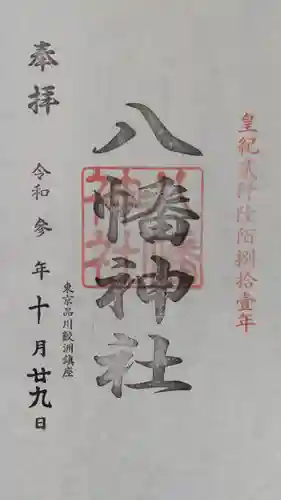 皇紀貳阡陸陌捌拾壹年
八幡神社
東京品川鮫洲鎮座
奉拝
令和参年十月廿九日